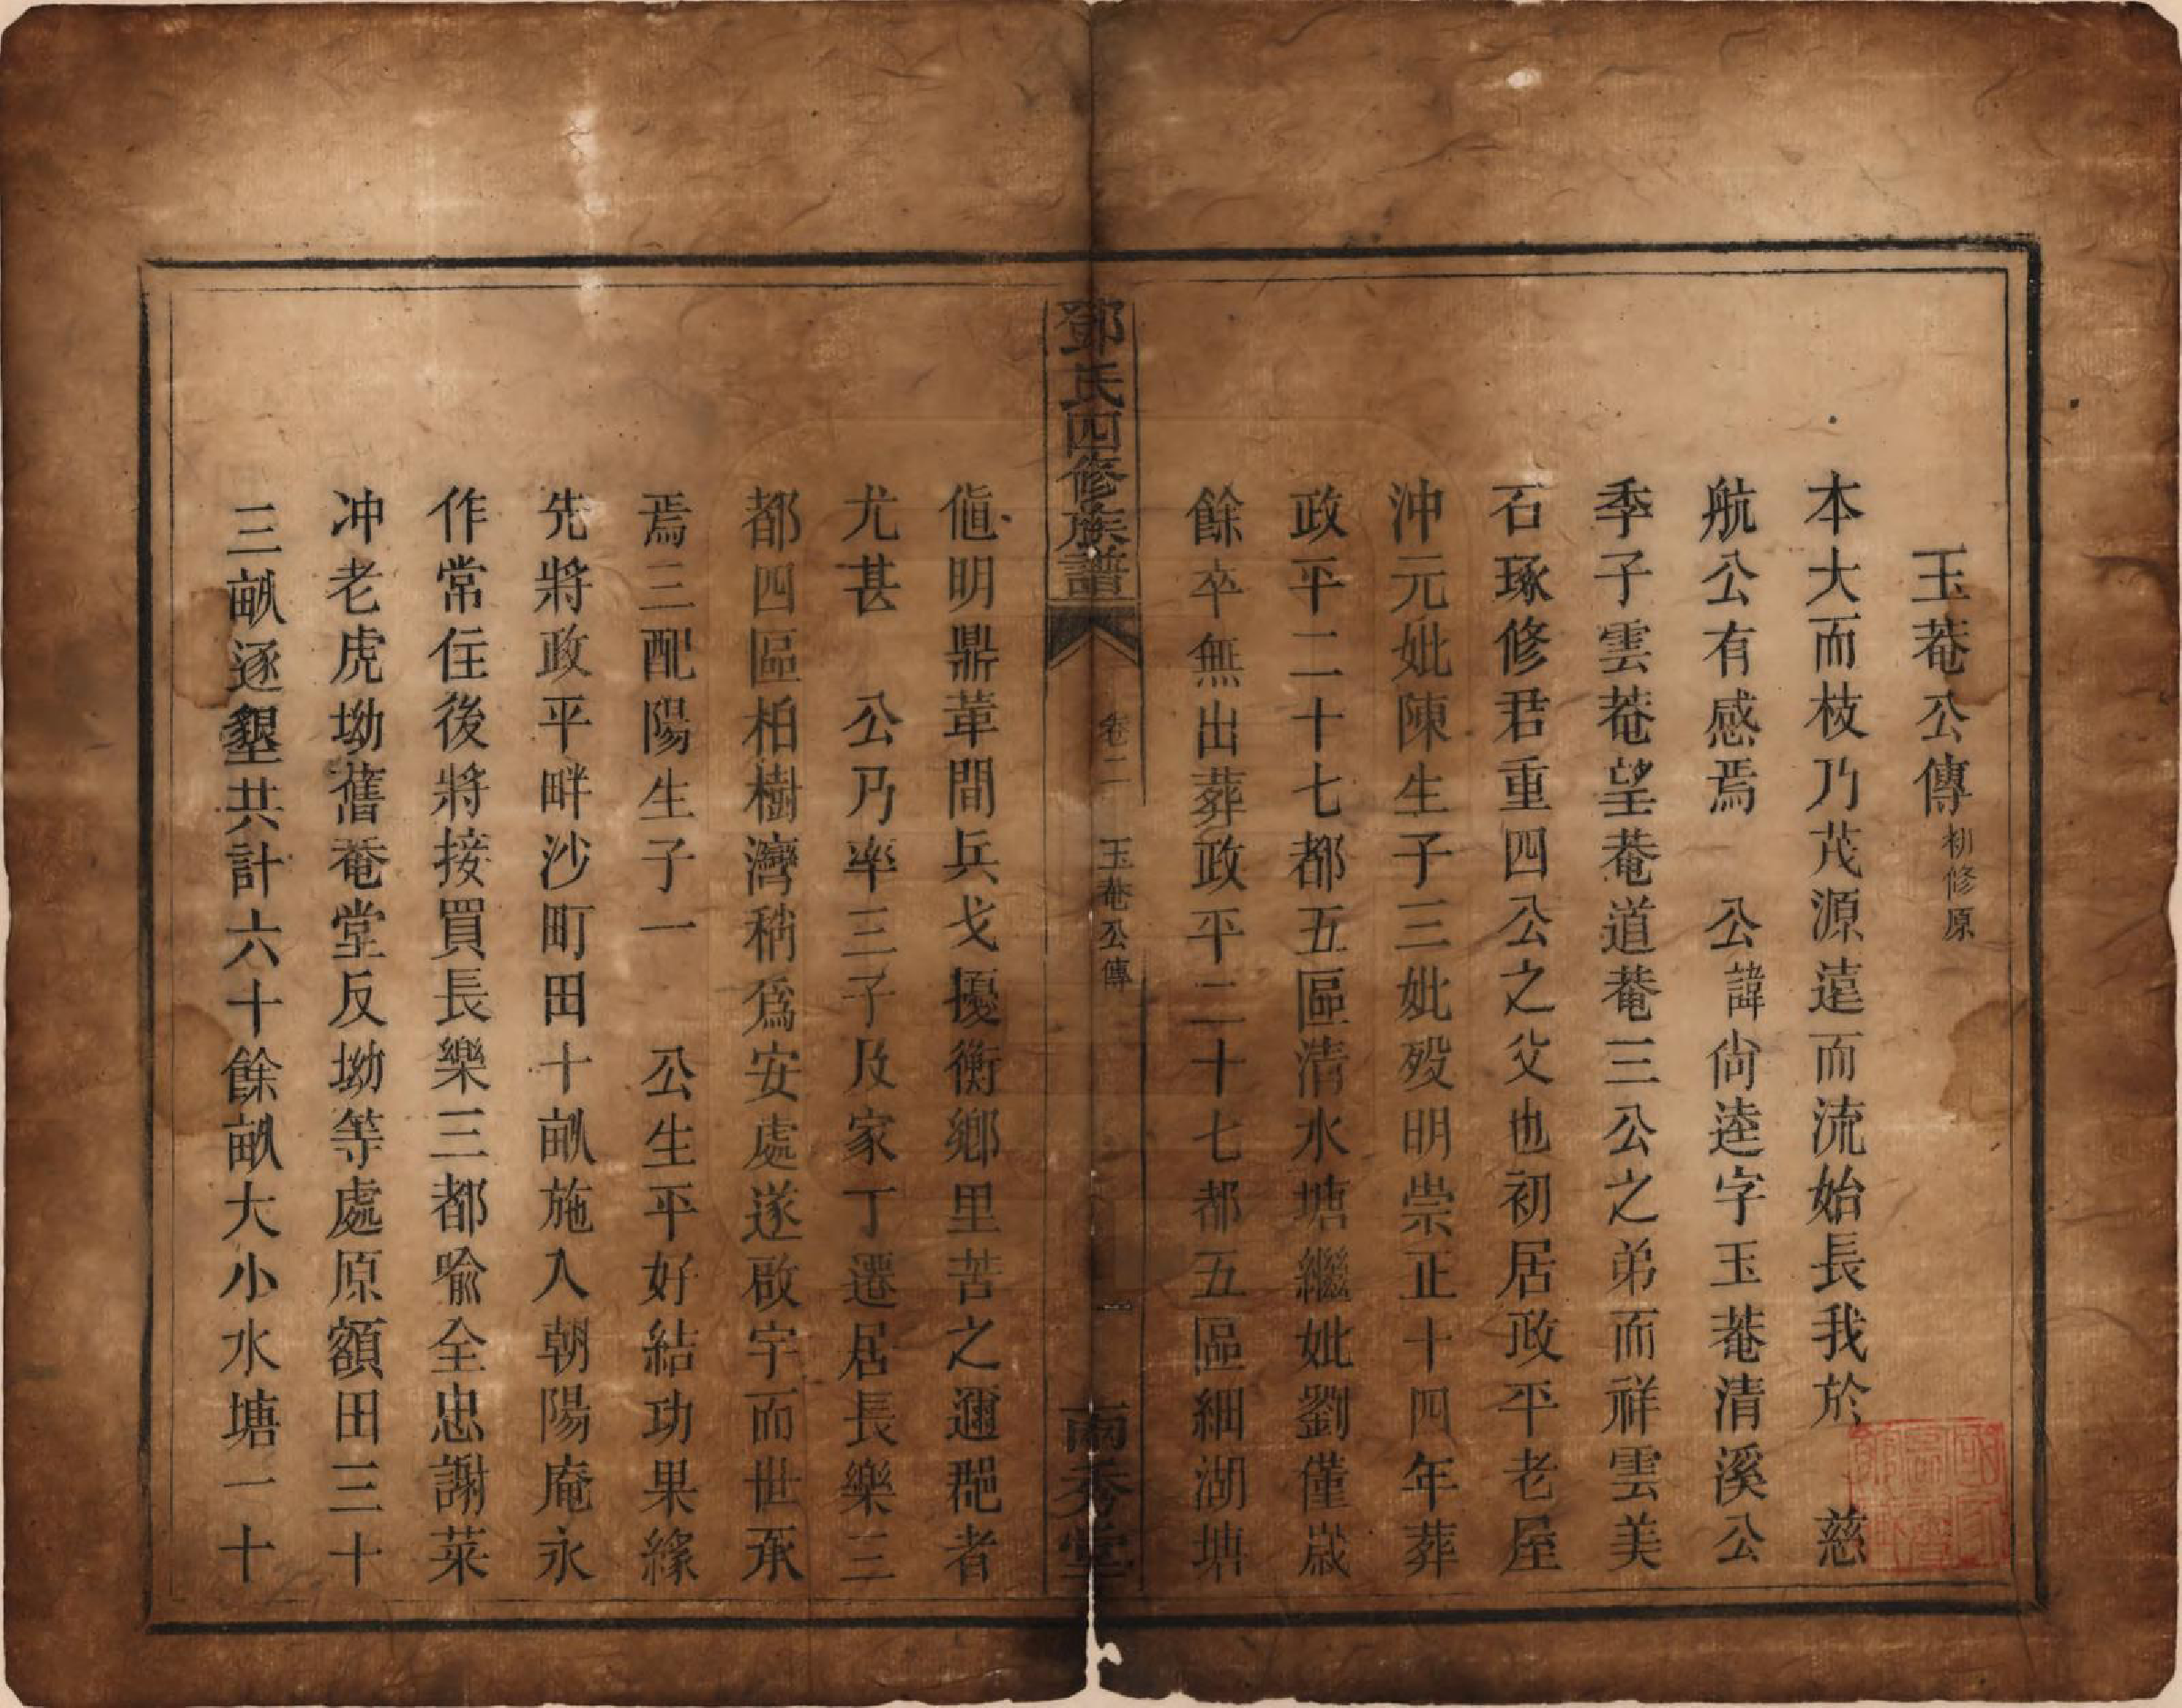 玉菴公傳 初修原
本大而枝乃茂源遠而流始長我於　慈
航公有感焉　公諱尙逵字玉菴清溪公
季子雲菴望菴道菴三公之弟而祥雲美
石琢修君重四公之父也初居政平老屋
沖元妣陳生子三妣歿明崇正十四年葬
政平二十七都五區清水塘繼妣劉僅歲
餘卒無出葬政平二十七都五區細湖塘
鄧氏四修族譜
卷二
玉菴公傳
一
南秀堂
值明鼎革間兵戈擾衡鄉里苦之邇郶者
尤甚　公乃率三子及家丁遷居長樂三
都四區柏樹灣稍爲安處遂啟宇而世承
焉三配陽生子一　公生平好結功果緣
先將政平畔沙町田十畝施入朝陽庵永
作常住後將接買長樂三都喻全忠謝萊
冲老虎坳舊菴堂反坳等處原額田三十
三畝逐墾共計六十餘畝大小水塘一十